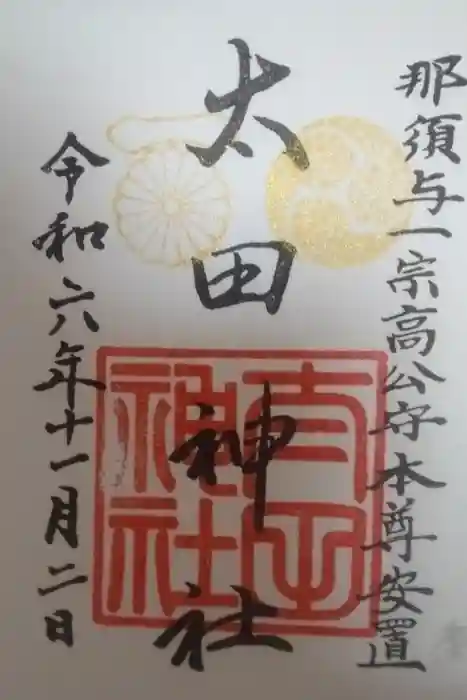 那須与一宗高公守本尊安置
太田神社
令和六年十一月二日
太田神社